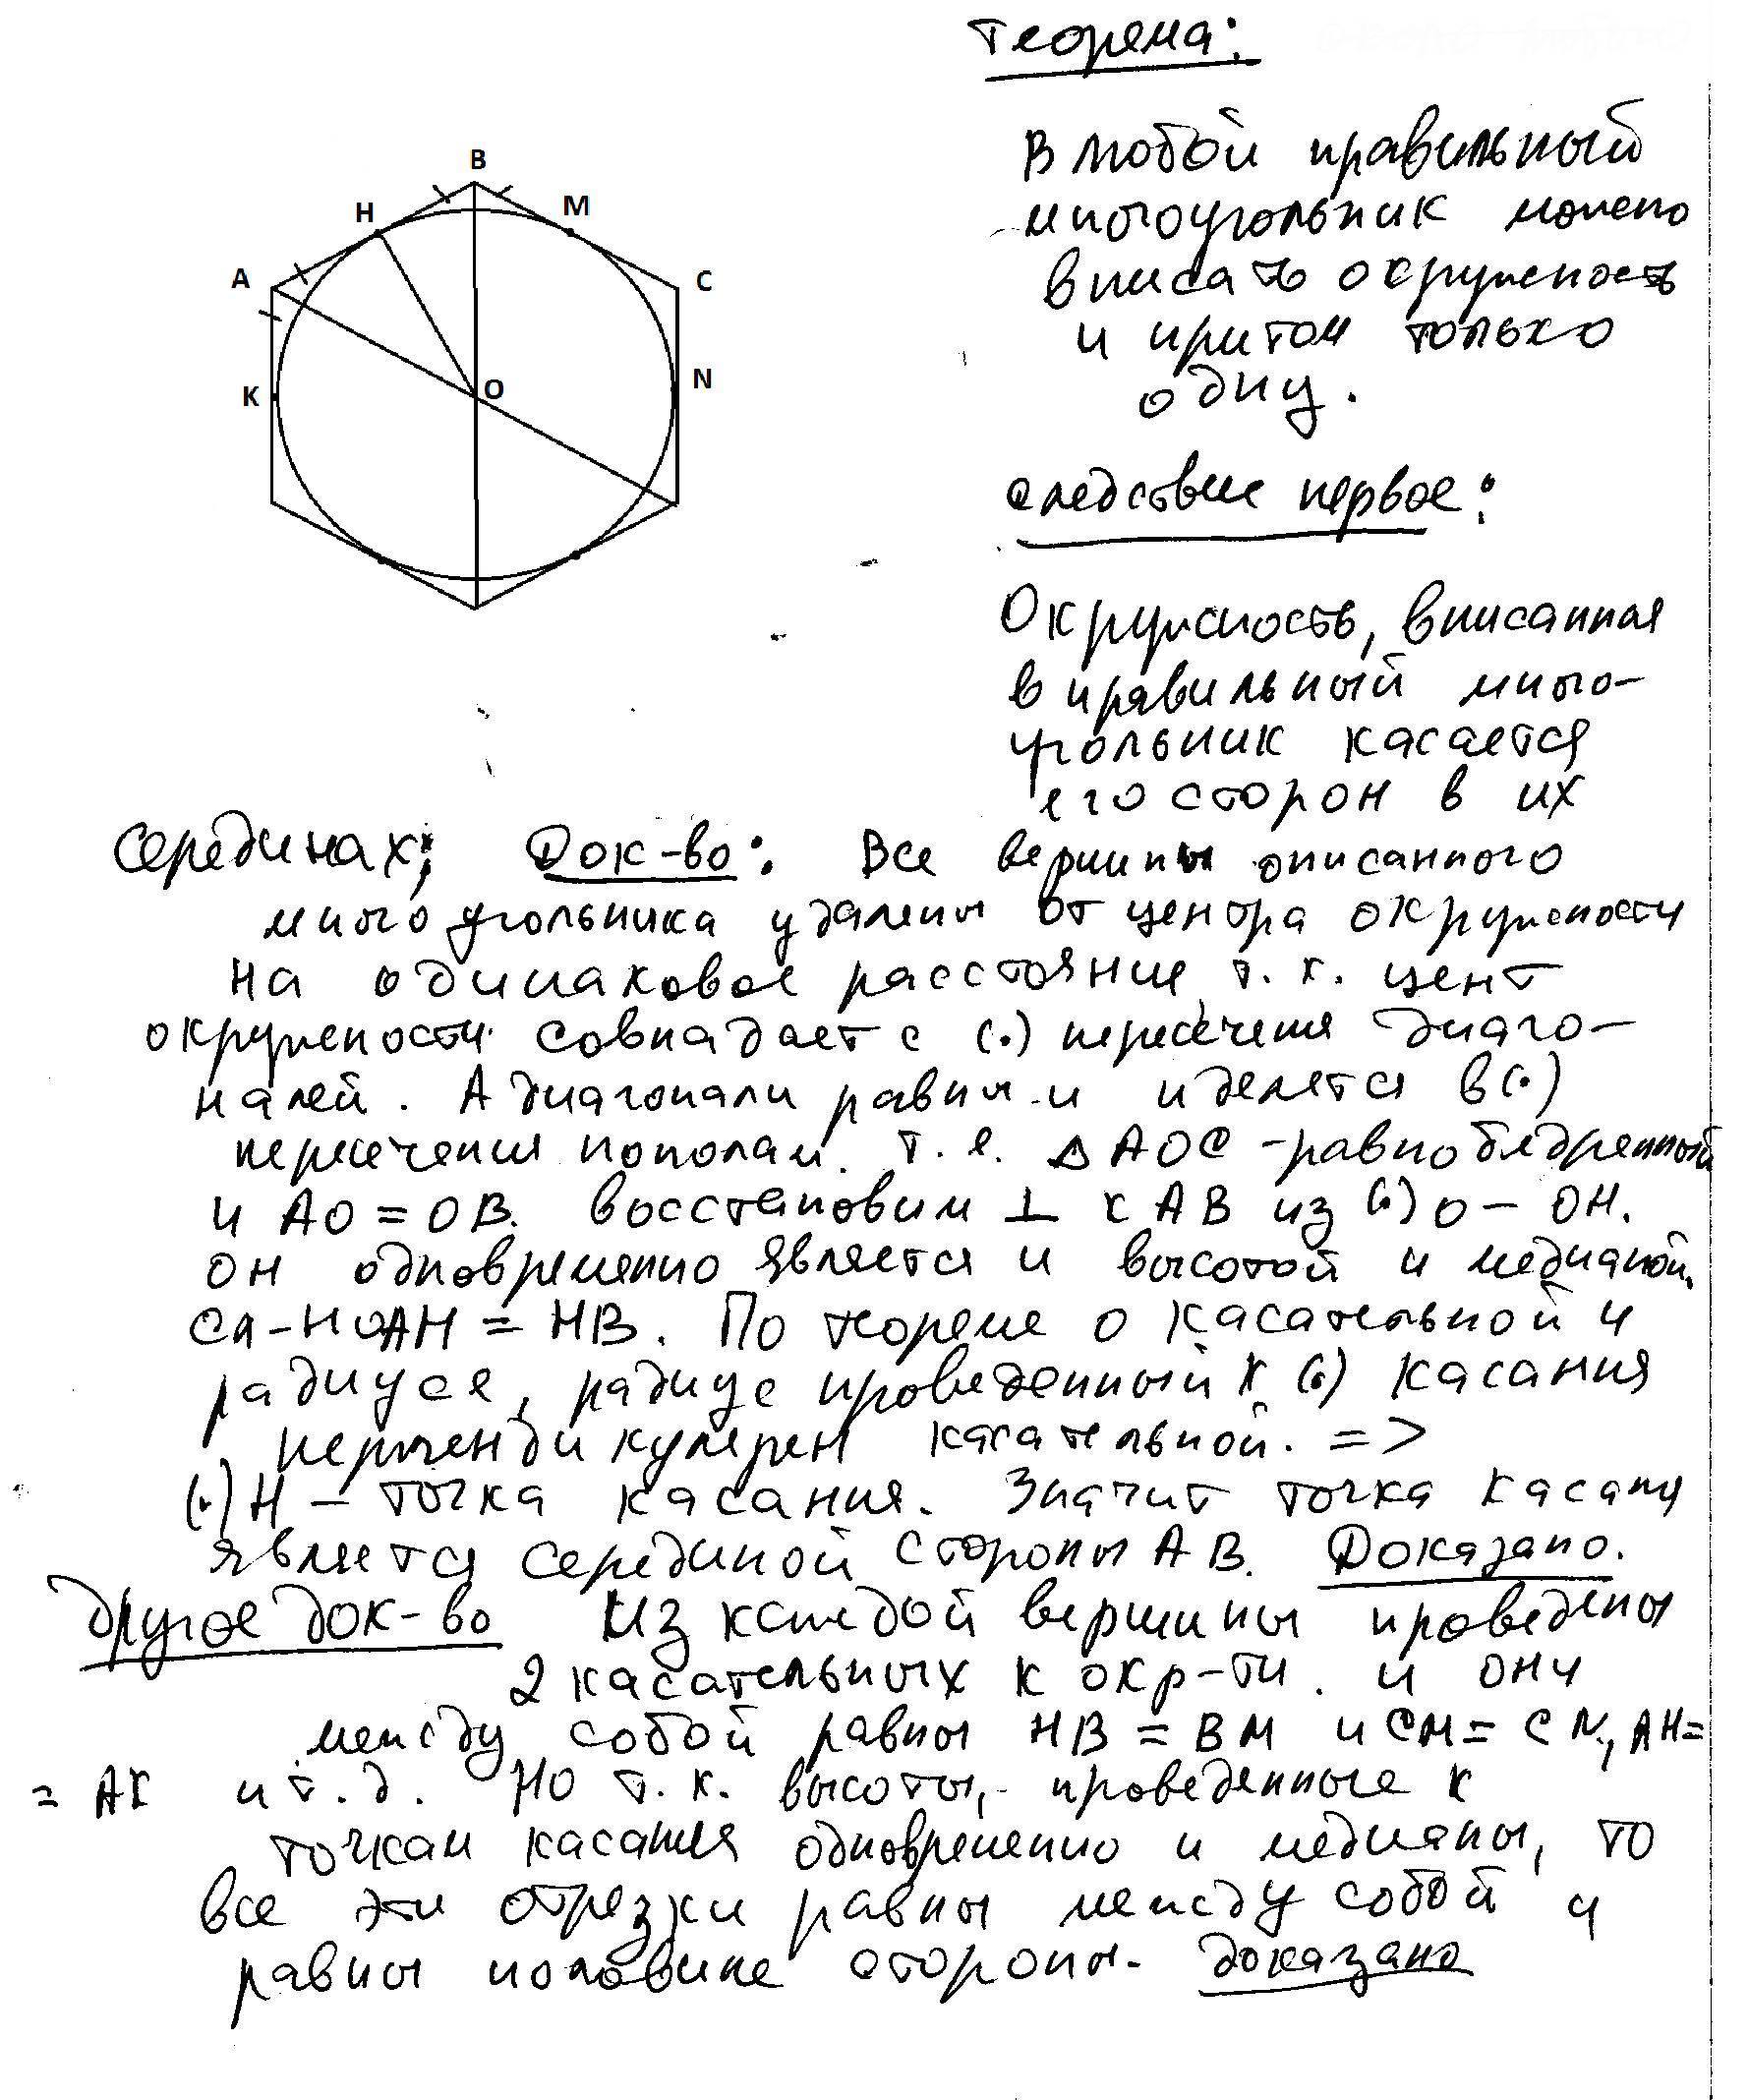 Теорема:
В любой правильный
многоугольник можно
вписать окружность
и притом только
одну.
B
H
M
A
C
K
O
N
следствие первое:
Окружность, вписанная
в правильный много-
угольник касается
его сторон в их
серединах; Док-во: Все вершины описанного
многоугольника удалены от центра окружности
на одинаковое расстояние, т.к. цент
окружности совпадает с (.) пересечения диаго-
налей. А диагонали равны и делятся в (.)
пересечения пополам. т.е. △ AOC - равнобедренный
и AO = OB. восстановим ⊥ к AB из (.) O - OH.
OH одновременно является и высотой и медианой.
AH = HB. По теореме о касательной и
радиусе, радиус проведенный к (.) касания
перпендикулярен касательной. =>
(.) H - точка касания. Значит точка касания
является серединой стороны AB. Доказано.
другое док-во Из каждой вершины проведены
2 касательных к окр-ти. и они
между собой равны HB = BM и CM = CN, AH =
= AK и т.д. Но т.к. высоты, проведенные к
точкам касания одновременно и медианы, то
все эти отрезки равны между собой и
равны половине стороны. доказано